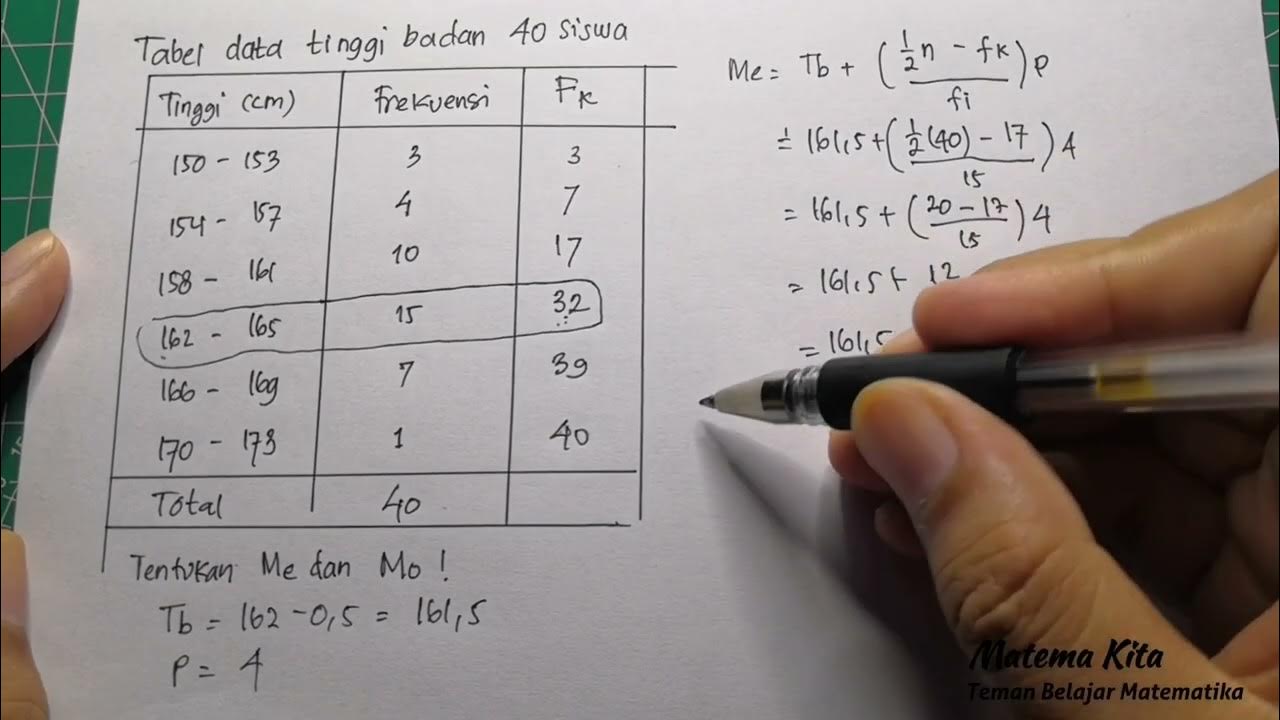 Tabel data tinggi badan 40 siswa
Tinggi (cm) Frekuensi Fk
150 - 153 3 3
154 - 157 4 7
158 - 161 10 17
162 - 165 15 32
166 - 169 7 39
170 - 173 1 40
Total 40
Tentukan Me dan Mo !
Tb = 162 - 0,5 = 161,5
P = 4
Me = Tb + (½n - fk / fi) P
= 161,5 + (½(40) - 17 / 15) 4
= 161,5 + (20 - 17 / 15) 4
= 161,5 + 12
= 161,5
Matema Kita
Teman Belajar Matematika